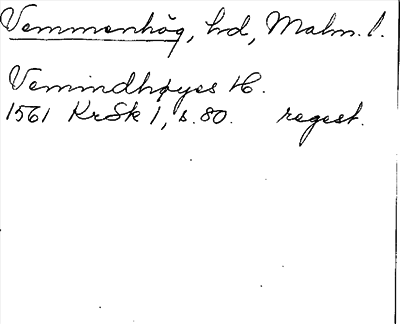 Vemmenhög, hd, Malm. l.
Vemindhøyes H.
1561 KrSk 1, s. 80. regest.